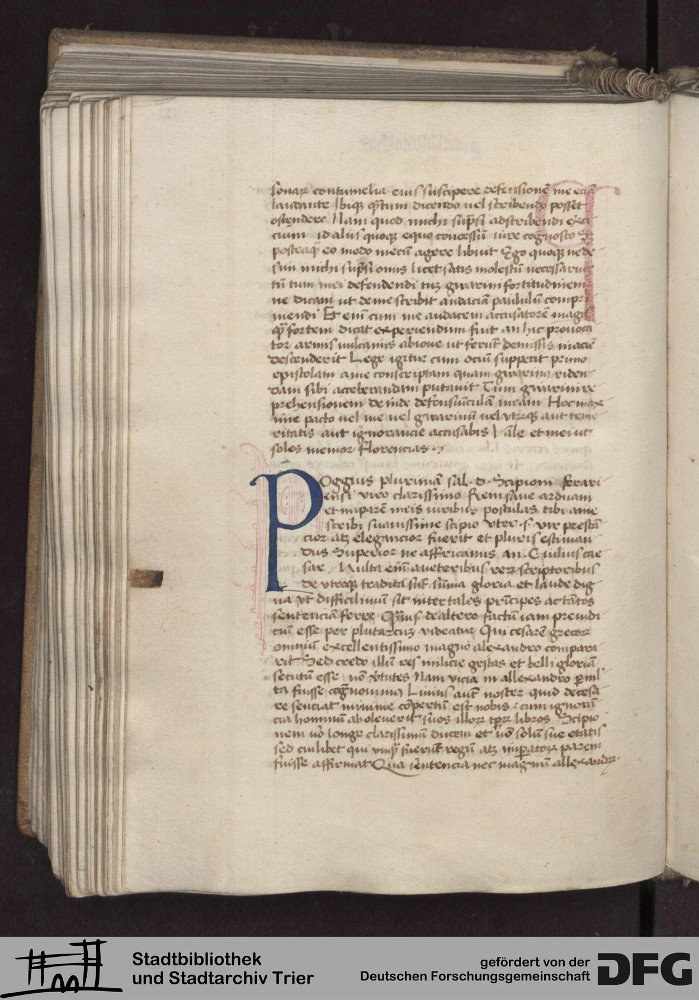 sonaꝝ contumelia eius suscipere defensionē me eciā
laudante Ibiqꝫ qͣtum dicendo vel scribendo posset
ostendere Nam quod michi sup̄si adscribendi exer
cicium id aliis quoqꝫ equo concessū iure cognosco S
posteaqͣ eo modo mecū agere libuit Ego quoqꝫ nede
sim michi sup̄si omis licet satis molestū necessariū
tū tum mei defendendi tuꝫ gwarini fortitudinem
ne dicam ut de me scribit audaciā paululū compri
mendi Et em̄ cum me audacem accusatorē magis
qͣ fortem dicat experiendum fuit an hic prouoca
tor armis vulcaniis abioue ut ferūt demissis inaciē
descenderit Lege igitur cum ociū suppetit primo
epistolam a me conscriptam quam gwarinus riden
dam sibi acceberandam putauit Tum gwarini re
prehensionem deinde defensiūculā meam Hoc max
ime pacto vel me vel gwarinū vel vtrūqꝫ aut teme
ritatis aut ignorancie accusabis Vale et mei ut
soles memor Florencias
POggius plurimā sal. d. Scipioni ferrari
ensi viro clarissimo Rem sane arduam
et imparem meis viribus postulas tibi a me
scribi suauissime scipio vter .s. vir prestā
cior atqꝫ elegancior fuerit et pluris estiman
dus Superior ne affricanus an C iulius cae
sar Multa em̄ a veteribus reꝝ scriptoribus
de vtroqꝫ tradita sūt sūma gloria et laude dig
na vt difficilimū sit inter tales principes ac tātos
sentenciā ferre Qͣuis de altero factū iam preiudi
ciū esse per plutarcuꝫ videatur Qui cesarē grecoꝝ
omniū excellentissimo magno alexandro compara
rit Sed credo illū res milicie gestas et belli gloriā
secutū esse nō v̓tutes Nam vicia in allexandro ꝑml̄
ta fuisse cogͣnouimus Liuius aut̄ noster quid de cesa
re senciat minime cōpertū est nobis cum ignorā
cia hominū aboleuerit suos illoꝝ tꝑꝝ libros Scipio
nem v̓o longe clarissimū ducem et nō solū sue etatis
sed cuiuslibet qui vnqͣ fuerūt regū atqꝫ imꝑatoꝝ parem
fuisse affirmat Qua sentencia nec magnū allexandꝝ
Stadtbibliothek
und Stadtarchiv Trier
gefördert von der
Deutschen Forschungsgemeinschaft
DFG